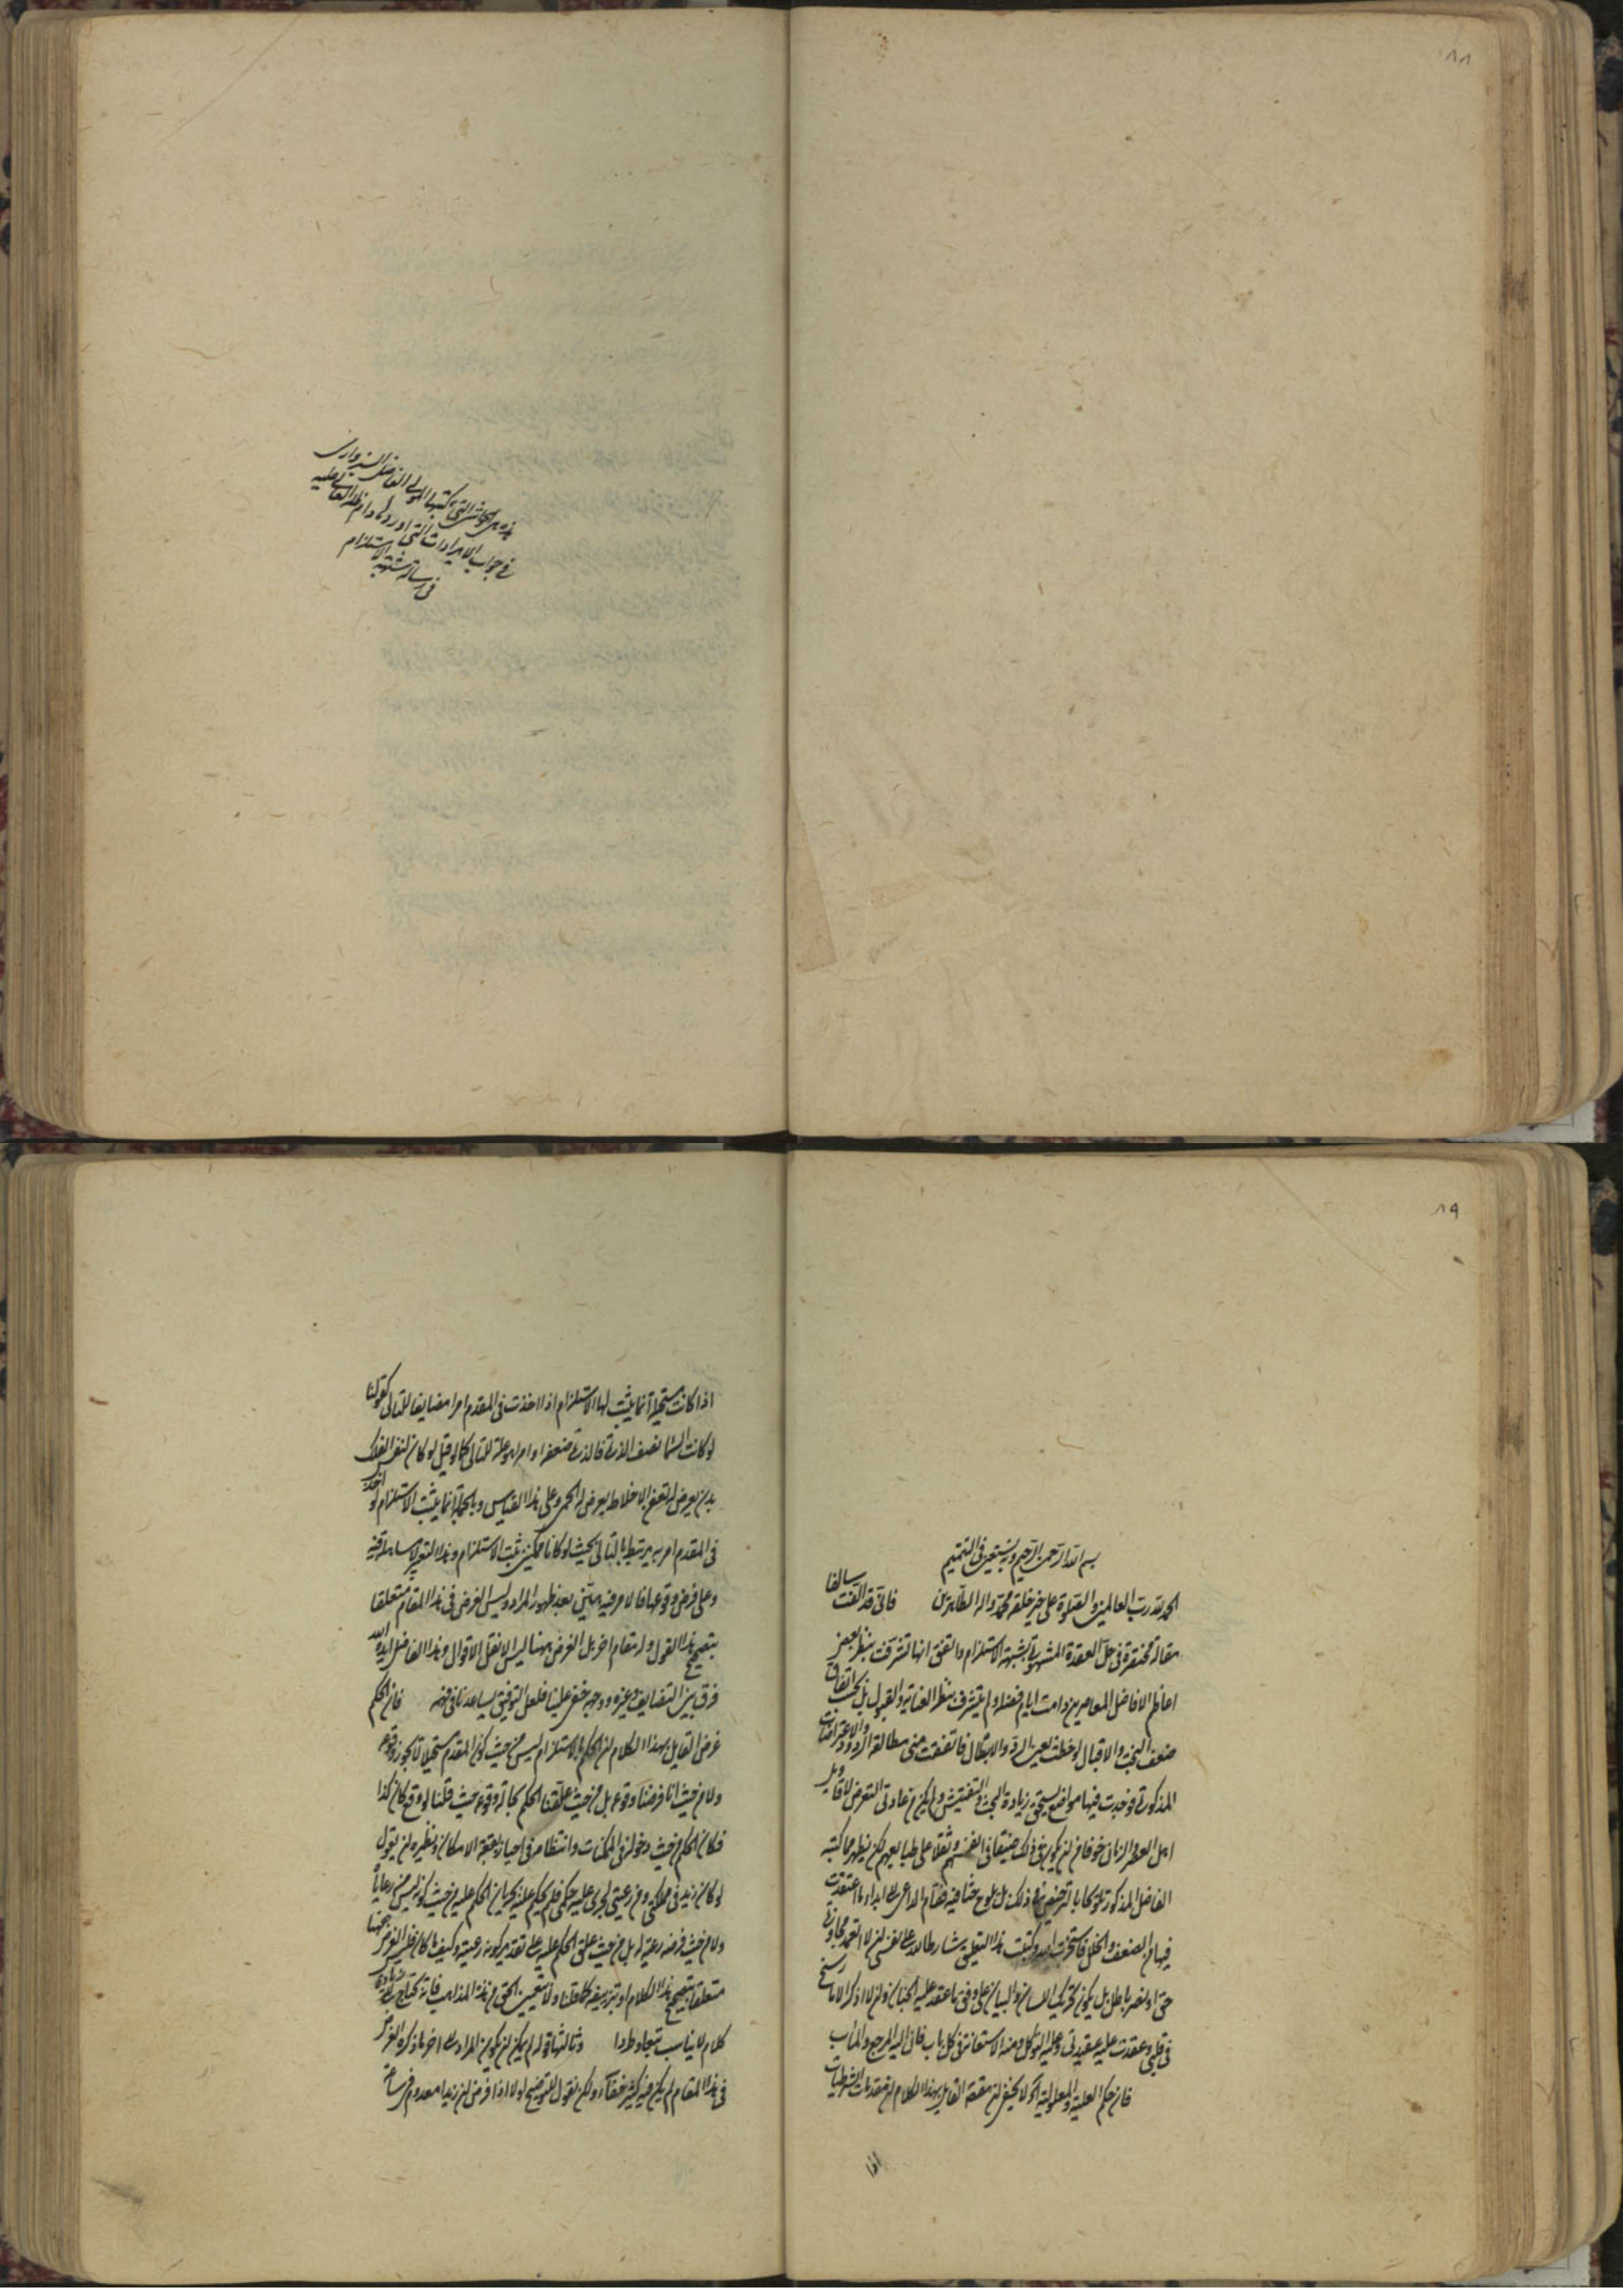 ٨٨
هذه الحواشى التى كتبها المولى الفاضل السبزوارى
فى جواب الايرادات التى اوردها دام ظله العالى عليه
فى رسالة شبهة الاستلزام
٨٩
بسم الله الرحمن الرحيم وبه نستعين فى التتميم
الحمد لله رب العالمين والصلوة على خير خلقه محمد واله الطاهرين فانى قد الفت سالفا
مقالة مختصرة فى حل العقدة المشهورة بشبهة الاستلزام واتفق انها تشرفت بنظر بعض
اعاظم الافاضل المعاصرين دامت ايام فضله ولم يتشرف بنظر العناية والقبول بل بحسب اتفاق
ضعف البخت والاقبال لوحظت بعين الرد والابطال فاتفقت منى مطالعة الردود والاعتراضات
المذكورة فوجدت فيها مواضع يستحق زيادة البحث والتفتيش ولم يكن من عادتى التعرض لاقاويل
اهل العصر والزمان خوفا من ان يكون فى ذلك ضيقا فى انفسهم وثقلا على طبايعهم لكن يظهر مما كتبه
الفاضل المذكور تلويحا بالترخيص فى ذلك بل يلوح حثا فيه فقام الداعى الى ابداء ما اعتقدت
فيها من الضعف والخلل فاستخرت الله وكتبت هذا التعليق مشارطا لله على نفسى ان لا اتعمد مجاوزة
حق او نصر باطل بل يكون تحريك اللسان والبيان على وفق ما اعتقد عليه الجنان وان لا اذكر الا ما رسخ
فى قلبى وعقدت عليه عقيدتى وعليه التوكل ومنه الاستعانة فى كل باب فان اليه المرجع والمآب
فان حكم العلية والمعلولية آه لا يخفى ان مقصد القايل بهذا الكلام ان مقدمات الشرطيات
اذا
اذا كانت مستحيلة انما يثبت لها الاستلزام اذا اخذت فى المقدم امرا مضايفا للتالى كقولنا
لو كانت الستة نصف الذرة فالذرة ضعفها او امرا هو علة للتالى كما لو قيل لو كان لنفس الفلك
بدن يعرض له تعفن الاخلاط يعرض له الحمى وعلى هذا القياس وبالجملة انما يثبت الاستلزام لو اخذ
فى المقدم امر به يرتبط بالتالى بحيث لو كانا ممكنين ثبت الاستلزام وهذا التعبير لا مساهلة فيه
وعلى فرض وقوعها فالامر فيه هين بعد ظهور المراد وليس الغرض فى هذا المقام متعلقا
بتصحيح هذا القول وله مقام اخر بل الغرض ههنا ليس الا نقل الاقوال وهذا الفاضل ايده الله
فرق بين التضايف وغيره ووجهه خفى علينا فلعل التوفيق يساعدنا فى فهمه فان الحكم
غرض القايل بهذا الكلام ان الحكم بالاستلزام ليس من حيث كون المقدم مستحيلا لا يجوز وقوعه
ولا من حيث انا فرضنا وقوعه بل من حيث علقنا الحكم بحالة وقوعه حيث قلنا لو وقع كان كذا
فكان الحكم من حيث دخوله فى الممكنات وانتظامه فى احياز بقعة الامكان ونظيره ان يقول
لو كان زيد فى مملكتى ومن رعيتى لجرى عليه حكمى فلم يحكم عليه بجريان الحكم عليه من حيث كونه ليس من رعاياه
ولا من حيث فرضه رعية له بل من حيث علق الحكم عليه على تقدير كونه رعية وكيف ما كان فليس الغرض ههنا
متعلقا بتصحيح هذا الكلام او تزييفه كما قلنا ولا تعيين الحق من هذه المذاهب فانه يحتاج الى زيادة
كلام لا يناسب تتبعا وطردا وثالثها قوله لم يمكن ان يكون المراد معنى اخر ما ذكره الغرض
فى هذا المقام لم يكن فيه كثير خفاء ولكن نقول للتوضيح اولا اذا فرض ان زيدا معدوم فى ساعة